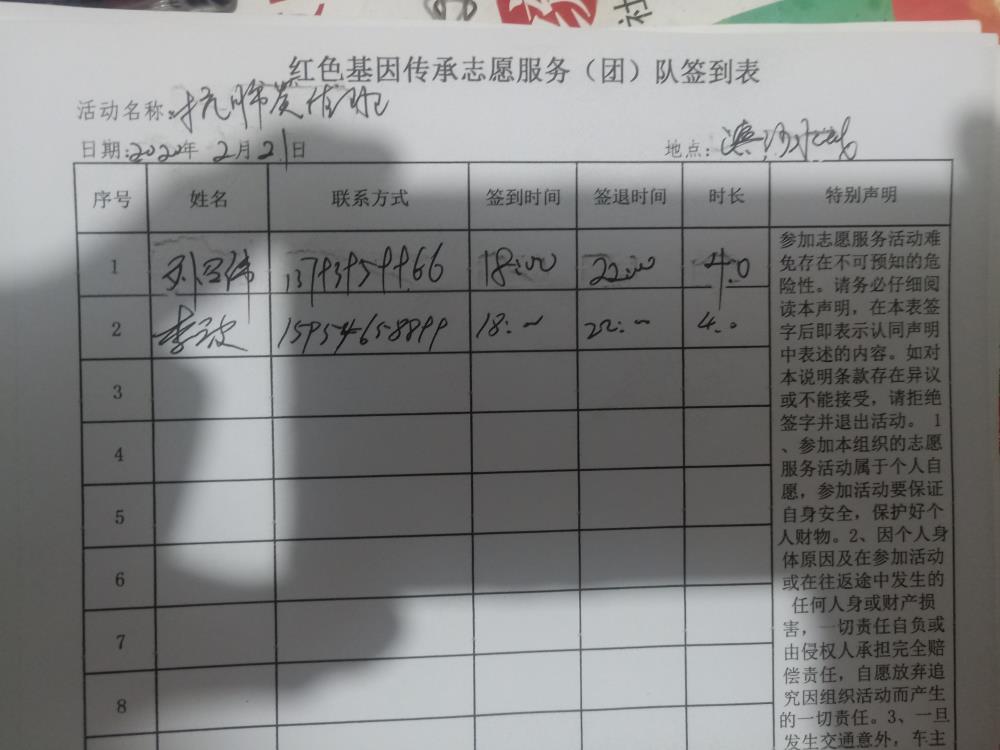 社
红色基因传承志愿服务（团）队签到表
活动名称:
日期:2020年 2月21日 地点:
序号 姓名 联系方式 签到时间 签退时间 时长 特别声明
1 18:00 22:00 4.0
2 李波 15954658899 18:~ 22:~ 4.0
3
4
5
6
7
8
参加志愿服务活动难
免存在不可预知的危
险性。请务必仔细阅
读本声明，在本表签
字后即表示认同声明
中表述的内容。如对
本说明条款存在异议
或不能接受，请拒绝
签字并退出活动。 1
、参加本组织的志愿
服务活动属于个人自
愿，参加活动要保证
自身安全，保护好个
人财物。2、因个人身
体原因及在参加活动
或在往返途中发生的
任何人身或财产损
害，一切责任自负或
由侵权人承担完全赔
偿责任，自愿放弃追
究因组织活动而产生
的一切责任。3、一旦
发生交通意外，车主